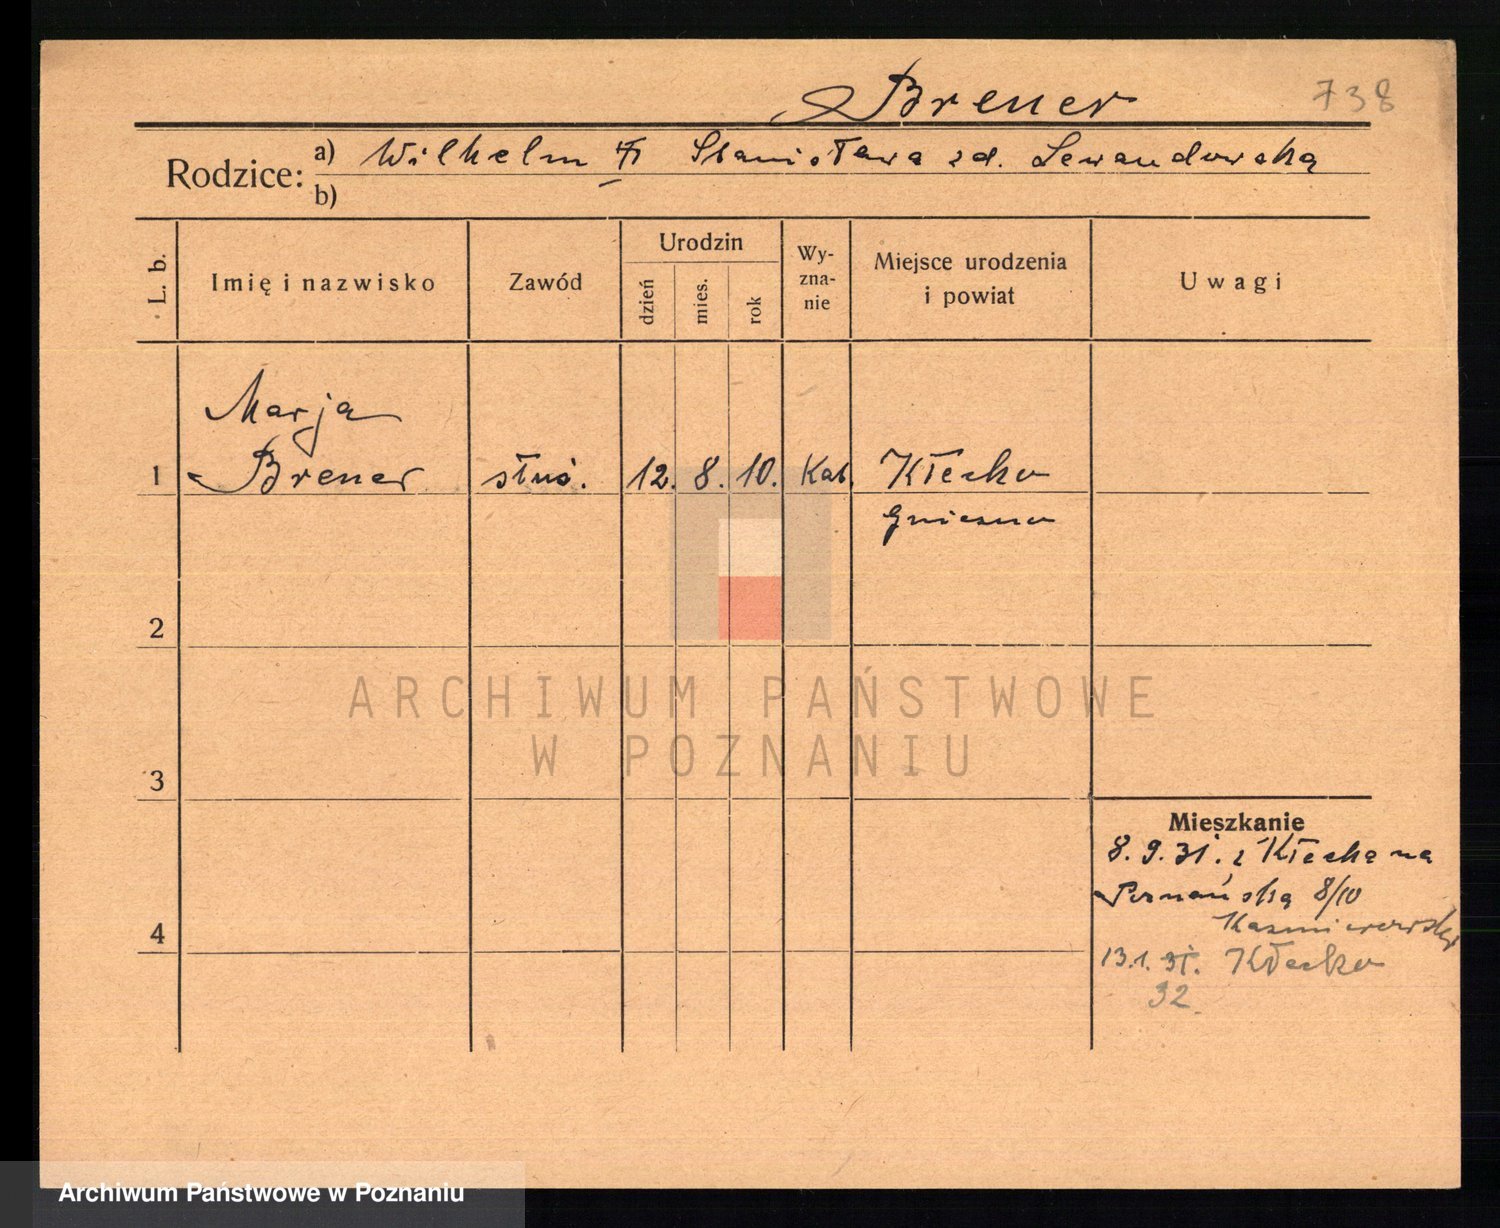 Brener 738
Rodzice: a) Wilhelm Stanisława zd. Lewandowska
b)
L. b. Imię i nazwisko Zawód Urodzin dzień mies. rok Wy-zna-nie Miejsce urodzenia i powiat Uwagi
Marja
1 Brener służ. 12. 8. 10. Kat. Kłecko
Gniezno
2
ARCHIWUM PAŃSTWOWE
W POZNANIU
3
Mieszkanie
8. 9. 31. z Kłecka na
Poznańską 8/10
4
13.1. 31. Kłecko
32
Archiwum Państwowe w Poznaniu